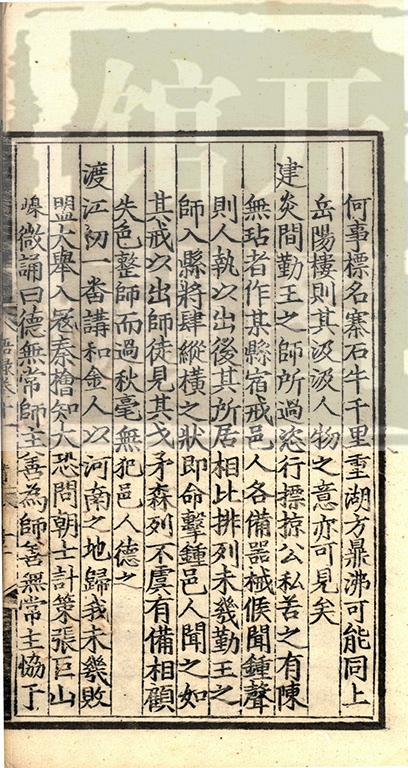 何事標名寨石牛千里重湖方鼎沸可能同上
岳陽樓則其汲汲人物之意亦可見矣
建炎間勤王之師所過恣行摽掠公私苦之有陳
無玷者作某縣宿戒邑人各備器械候聞鍾聲
則人執以出後其所居相比排列未幾勤王之
師入縣將肆縱橫之狀即命擊鍾邑人聞之如
其戒以出師徒見其戈矛森列不虞有備相顧
失色整師而過秋毫無犯邑人德之
渡江初一番講和金人以河南之地歸我未幾敗
盟大舉入冦秦檜知大恐問朝士計策張巨山
嵲微誦曰德無常師主善為師善無常主恊于